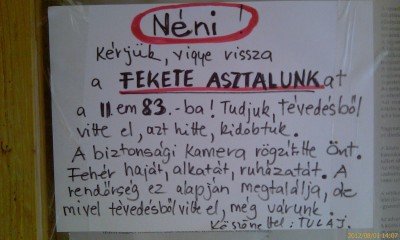 Néni!
Kérjük, vigye vissza
a FEKETE ASZTALUNKat
a II em 83.-ba! Tudjuk, tévedésből
vitte el, azt hitte, kidobtuk.
A biztonsági kamera rögzítette Önt.
Fehér haját, alkatát, ruházatát. A
rendőrség ez alapján megtalálja, de
mivel tévedésből vitte el, még várunk.
Köszönettel: TULAJ.
2012/08/01 14:07